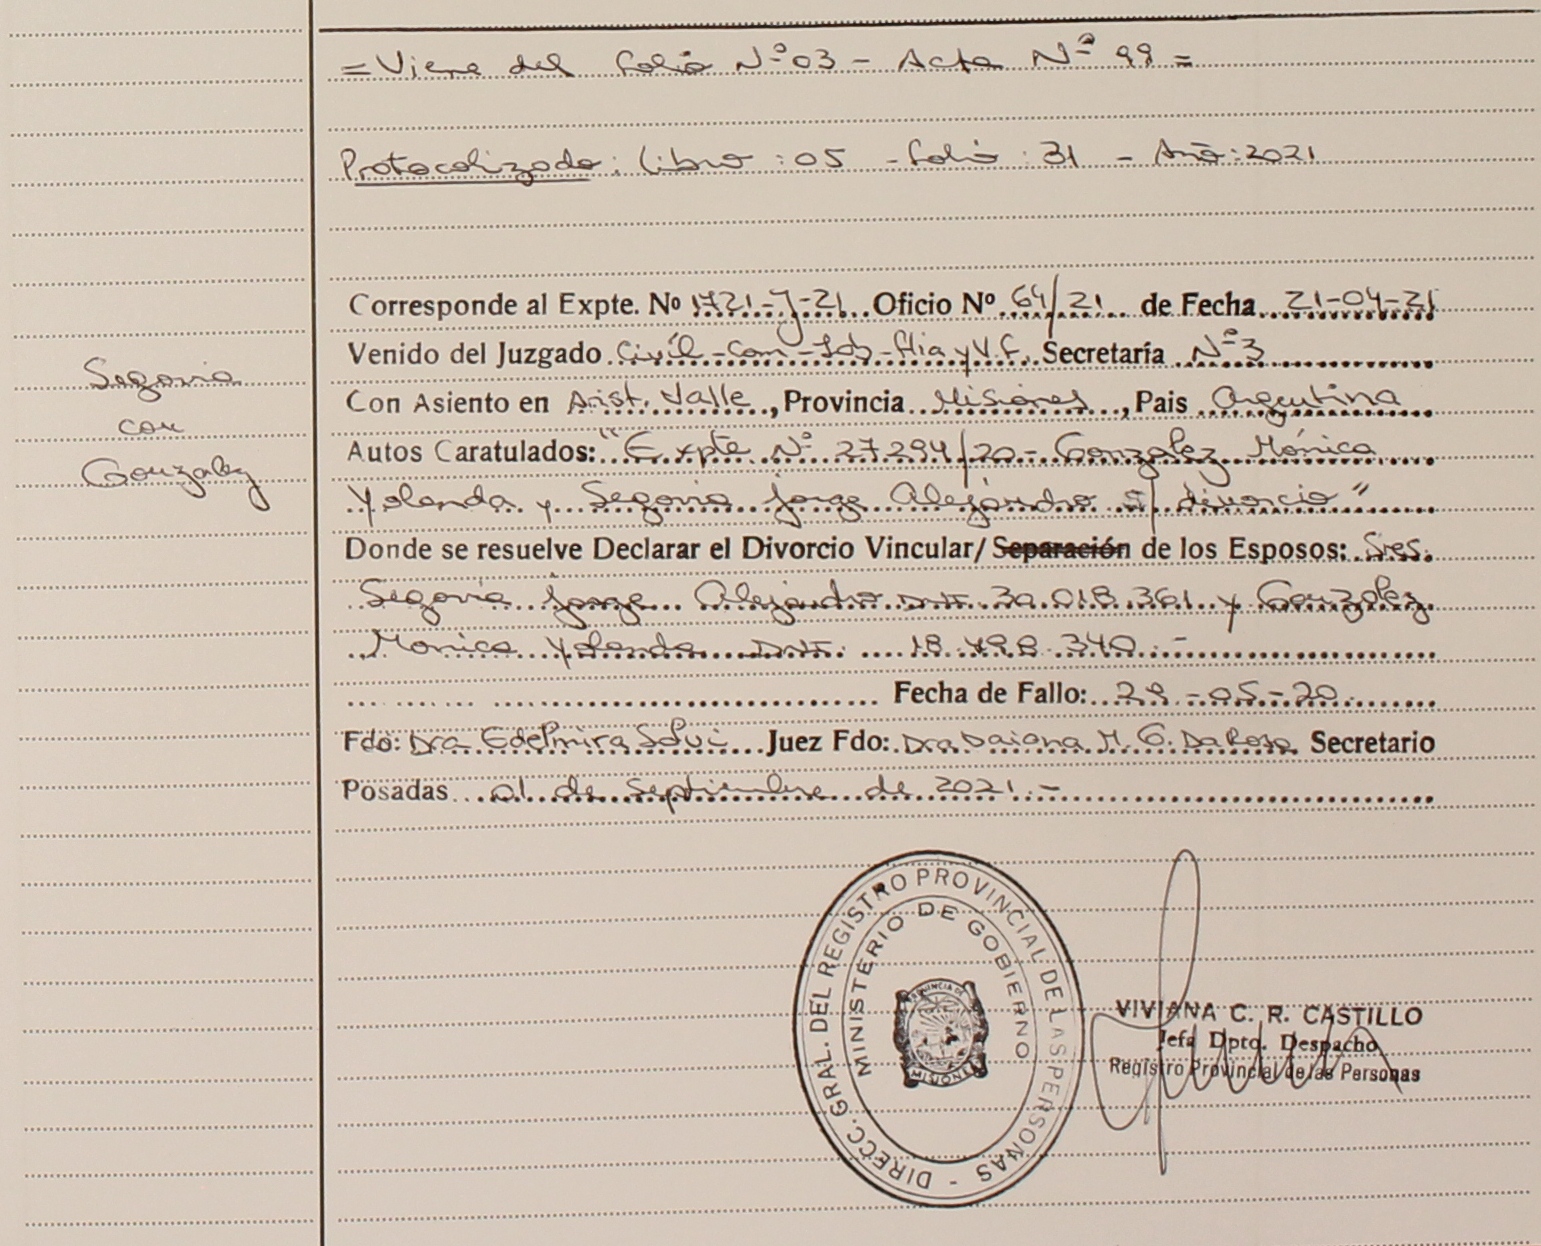 = Viene del folio Nº 03 - Acta Nº 99 =
Protocolizado: Libro: 05 - folio: 31 - Año: 2021
Segovia
con
Gonzalez
Corresponde al Expte. Nº 1721-J-21 Oficio Nº 64/21 de Fecha 21-04-21
Venido del Juzgado Civil - Com - Lab - flia y V.F. Secretaría Nº 3
Con Asiento en Arist. Valle, Provincia Misiones, Pais Argentina
Autos Caratulados: "Expte Nº 27294/20 - Gonzalez Mónica
Yolanda y Segovia Jorge Alejandro s/ divorcio"
Donde se resuelve Declarar el Divorcio Vincular/ Separación de los Esposos: Sres.
Segovia Jorge Alejandro DNI. 30.018.361 y Gonzalez
Monica Yolanda DNI. 18.498.340.-
Fecha de Fallo: 29-05-20.
Fdo: Dra. Edelmira Juez Fdo: Dra Daiana M. Da Rosa Secretario
Posadas 01 de Septiembre de 2021.-
DIRECC. GRAL. DEL REGISTRO PROVINCIAL DE LAS PERSONAS -
MINISTERIO DE GOBIERNO
PROVINCIA DE
MISIONES
VIVIANA C. R. CASTILLO
Jefa Dpto. Despacho
Registro Provincial de las Personas